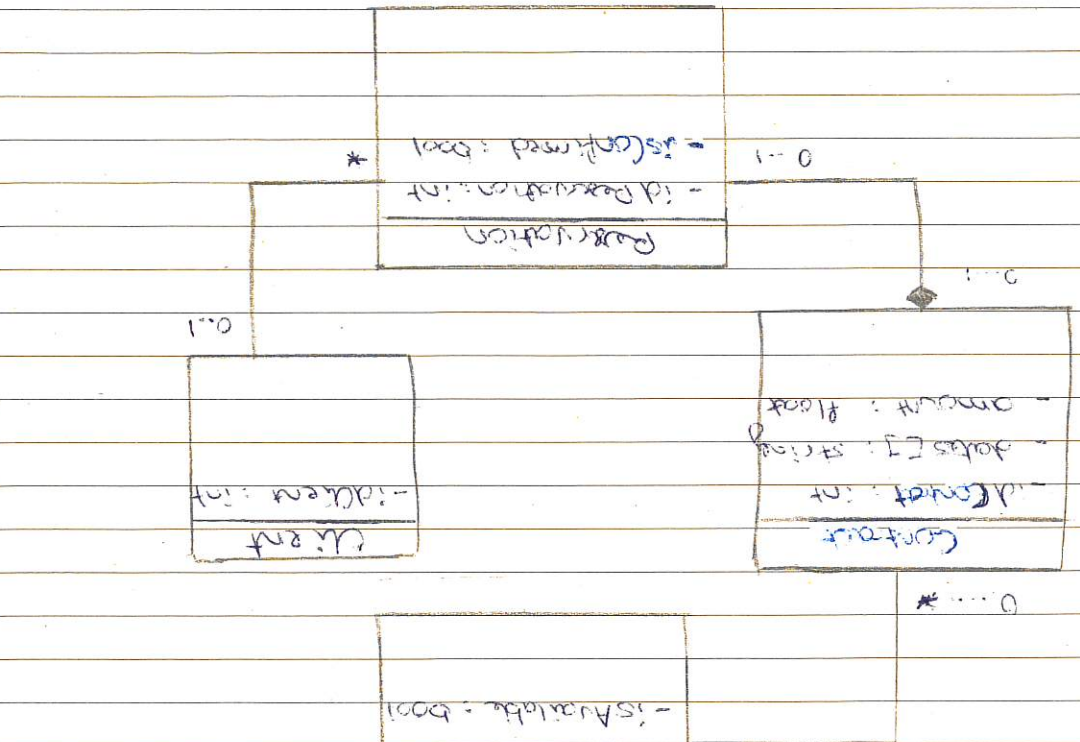 - isAvailable : bool
0....*
Contract
- idContrat : int
- dates[] : string
- amount : float
Client
- idClient : int
0..1
Reservation
- idReservation : int
- isConfirmed : bool
0..1
*